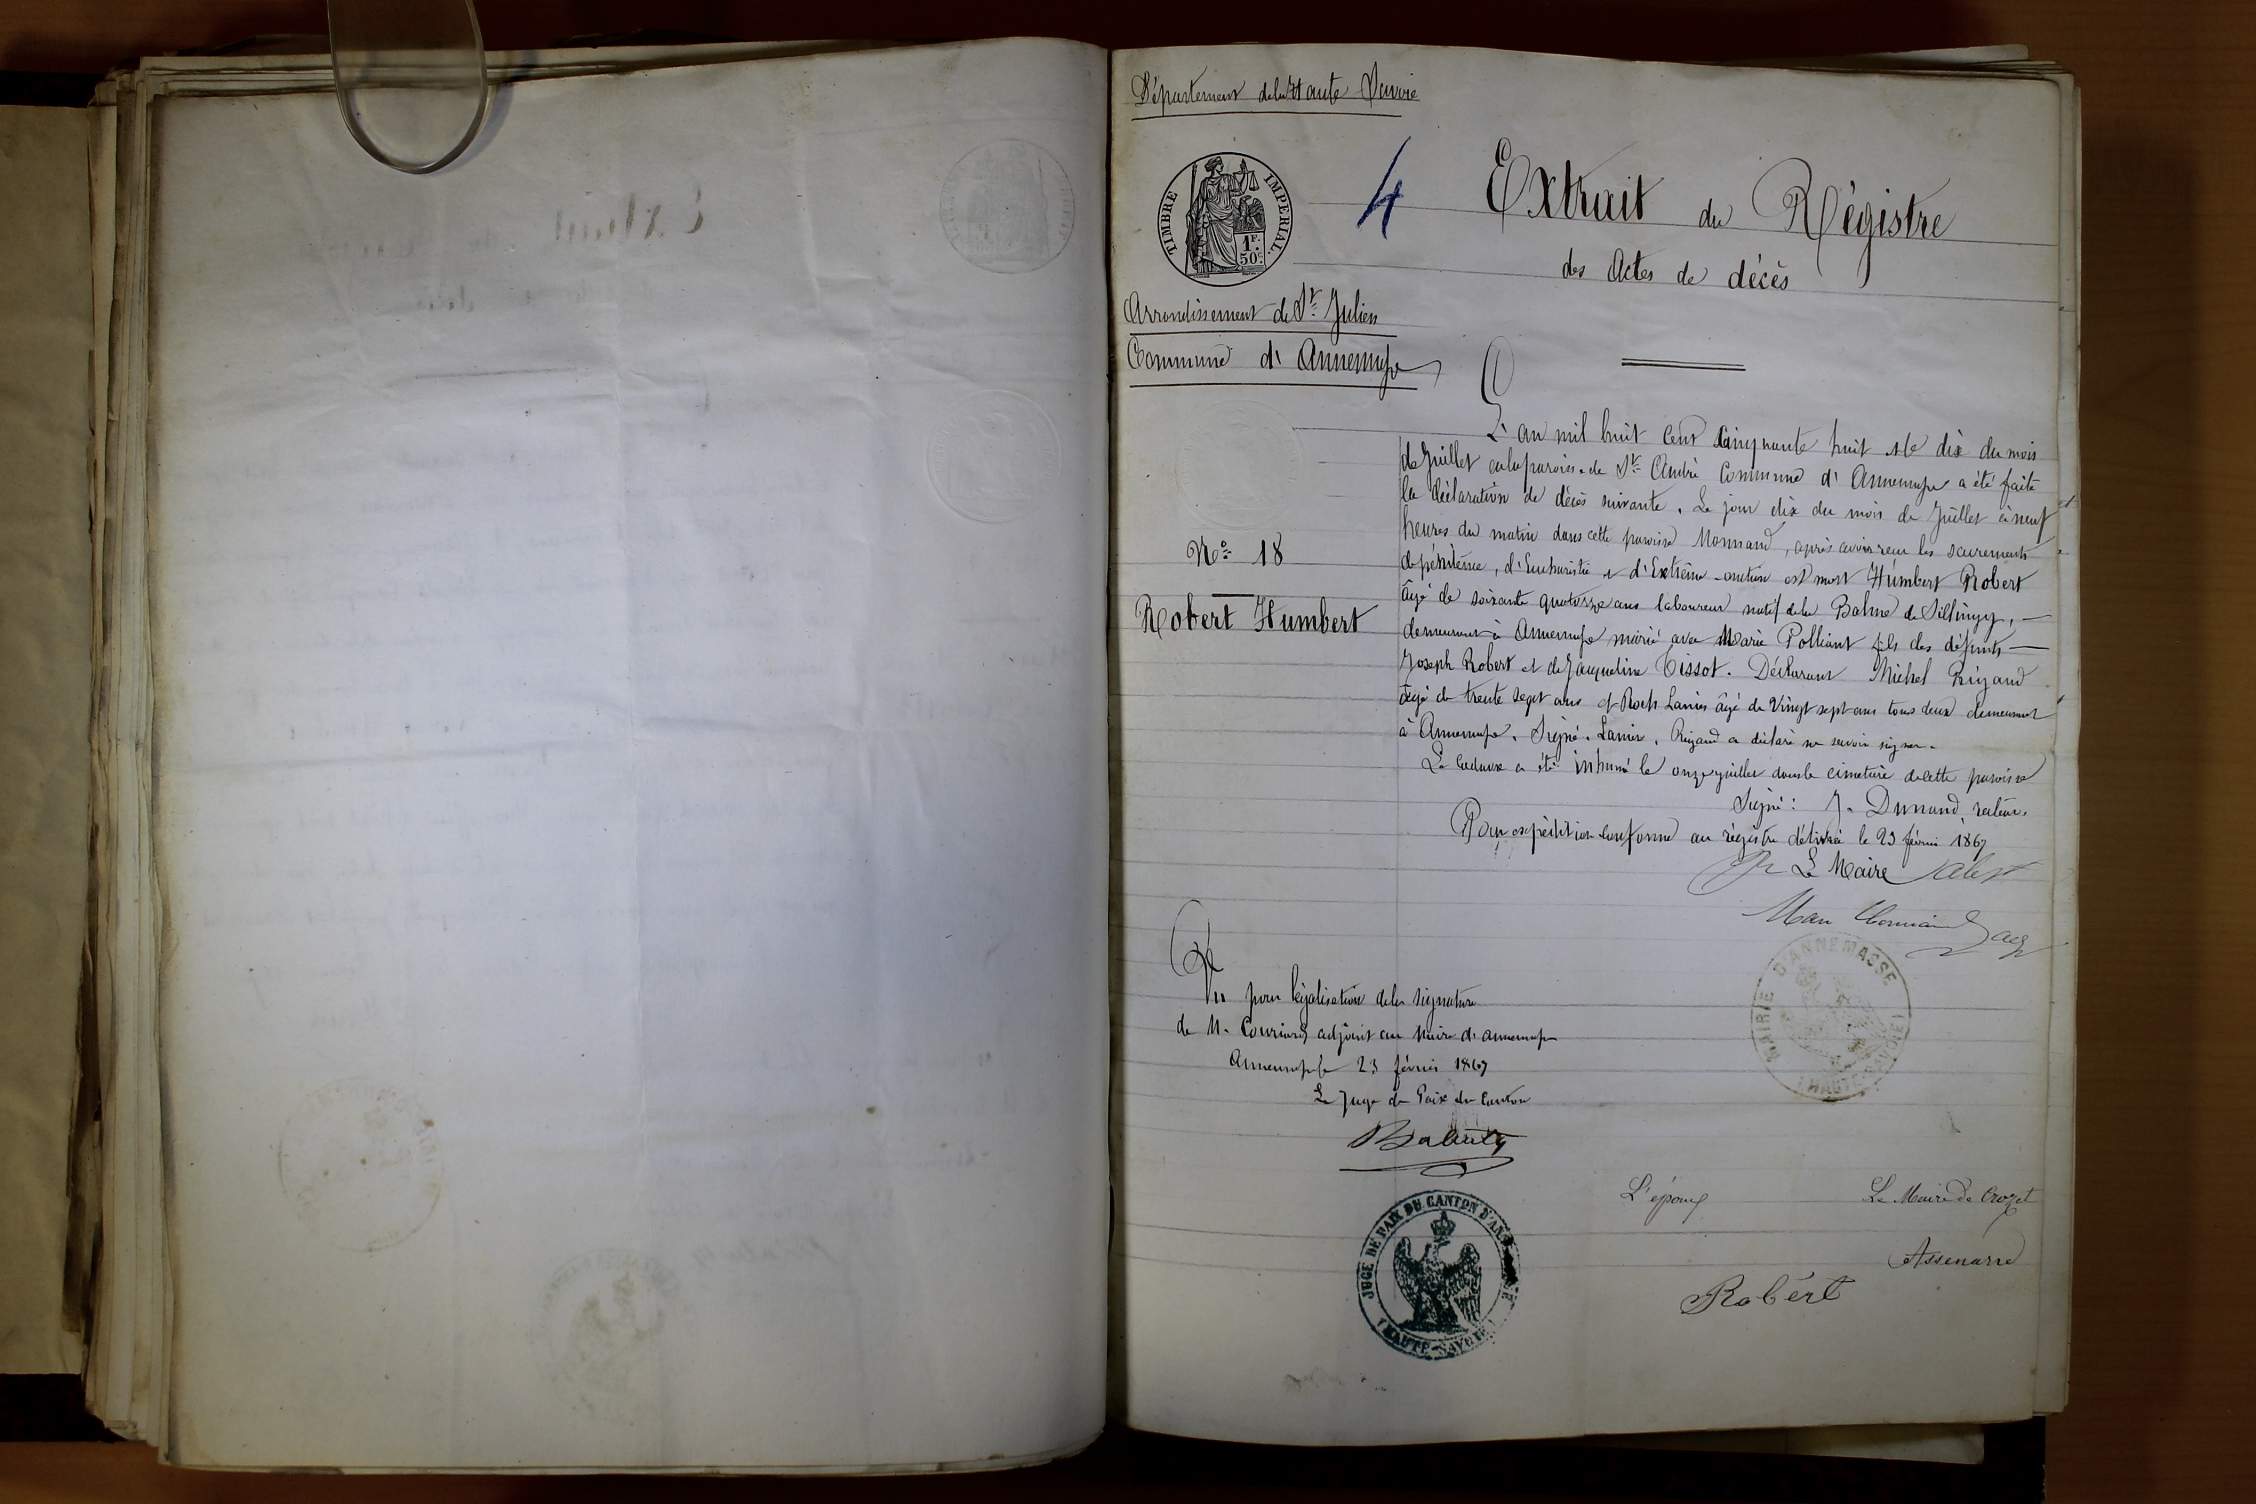 Département de la Haute Savoie
TIMBRE IMPERIAL
1F.
50c.
4
Extrait du Régistre
des Actes de décès
Arrondissement de St Julien
Commune d'Annemasse
L'an mil huit cent cinquante huit et le dix du mois
de Juillet en la paroisse de St André Commune d'Annemasse a été faite
la déclaration de décès suivante. Le jour dix du mois de Juillet à neuf
heures du matin dans cette paroisse, après avoir reçu les sacrements
de pénitence, d'Eucharistie et d'Extrême-onction est mort Humbert Robert
âgé de soixante quatorze ans laboureur natif de la Balme de Sillingy,
demeurant à Annemasse marié avec Marie Polliant fils des défunts
Joseph Robert et de Jacqueline Tissot. Déclarant Michel Rigaud
âgé de trente sept ans et Roch Lanier âgé de Vingt sept ans tous deux demeurant
à Annemasse. Signé. Lanier. Rigaud a déclaré ne savoir signer.
Le cadavre a été inhumé le onze juillet dans le cimetière de cette paroisse
Signé: J. Dunand, recteur.
Pour expédition conforme au régistre délivrée le 23 février 1867
Pr Le Maire
No 18
Robert Humbert
Vu pour légalisation de la signature
de M. Couriard adjoint au Maire d'annemasse
Annemasse le 23 février 1867
Le Juge de Paix du Canton
MAIRIE D'ANNEMASSE
(HAUTE-SAVOIE)
JUGE DE PAIX DU CANTON D'ANNEMASSE
(HAUTE-SAVOIE)
L'époux
Le Maire de Crozet
Assenarre
Robért